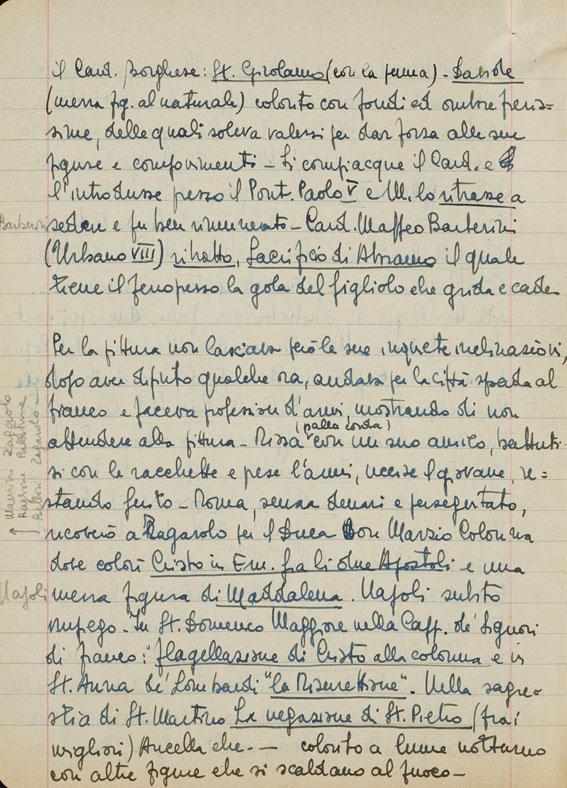 il Card. Borghese: St. Girolamo (con la penna) - Davide
(mezza fig. al naturale) colorito con fondi ed ombre fieris=
sime, delle quali soleva valersi per dar forza alle sue
figure e componimenti - Si compiacque il Card. e
l'introdusse presso il Pont. Paolo V e M. lo ritrasse a
Barberini
sedere e fu ben rimunerato - Card. Maffeo Barberini
(Urbano VIII) ritratto, Sacrificio di Abramo il quale
tiene il ferro presso la gola del figliolo che grida e cade
Per la pittura non lasciava però le sue inquiete inclinazioni,
dopo aver dipinto qualche ora, andava per la città spada al
fianco e faceva professione d'armi, mostrando di non
(palla corda)
attendere alla pittura - Rissa con un suo amico, battuti-
si con le racchette e prese l'armi, uccise l giovane, re-
stando ferito - Roma, senza denari e perseguitato,
Mancini Zagarolo
Baglione Palestrina
Bellori Zagarolo
ricoverò a Zagarolo per l Duca Don Marzio Colonna
dove colorì Cristo in Em. fra li due Apostoli e una
Napoli
mezza figura di Maddalena. Napoli subito
impiego. In St. Domenico Maggiore nella Capp. de' Signori
di Franco: "flagellazione di Cristo alla colonna e in
St. Anna de' Lombardi "la Risurrettione". Nella sagre-
stia di St. Martino La negazione di St. Pietro (fra i
migliori) Ancella che -- colorito a lume notturno
con altre figure che si scaldano al fuoco -